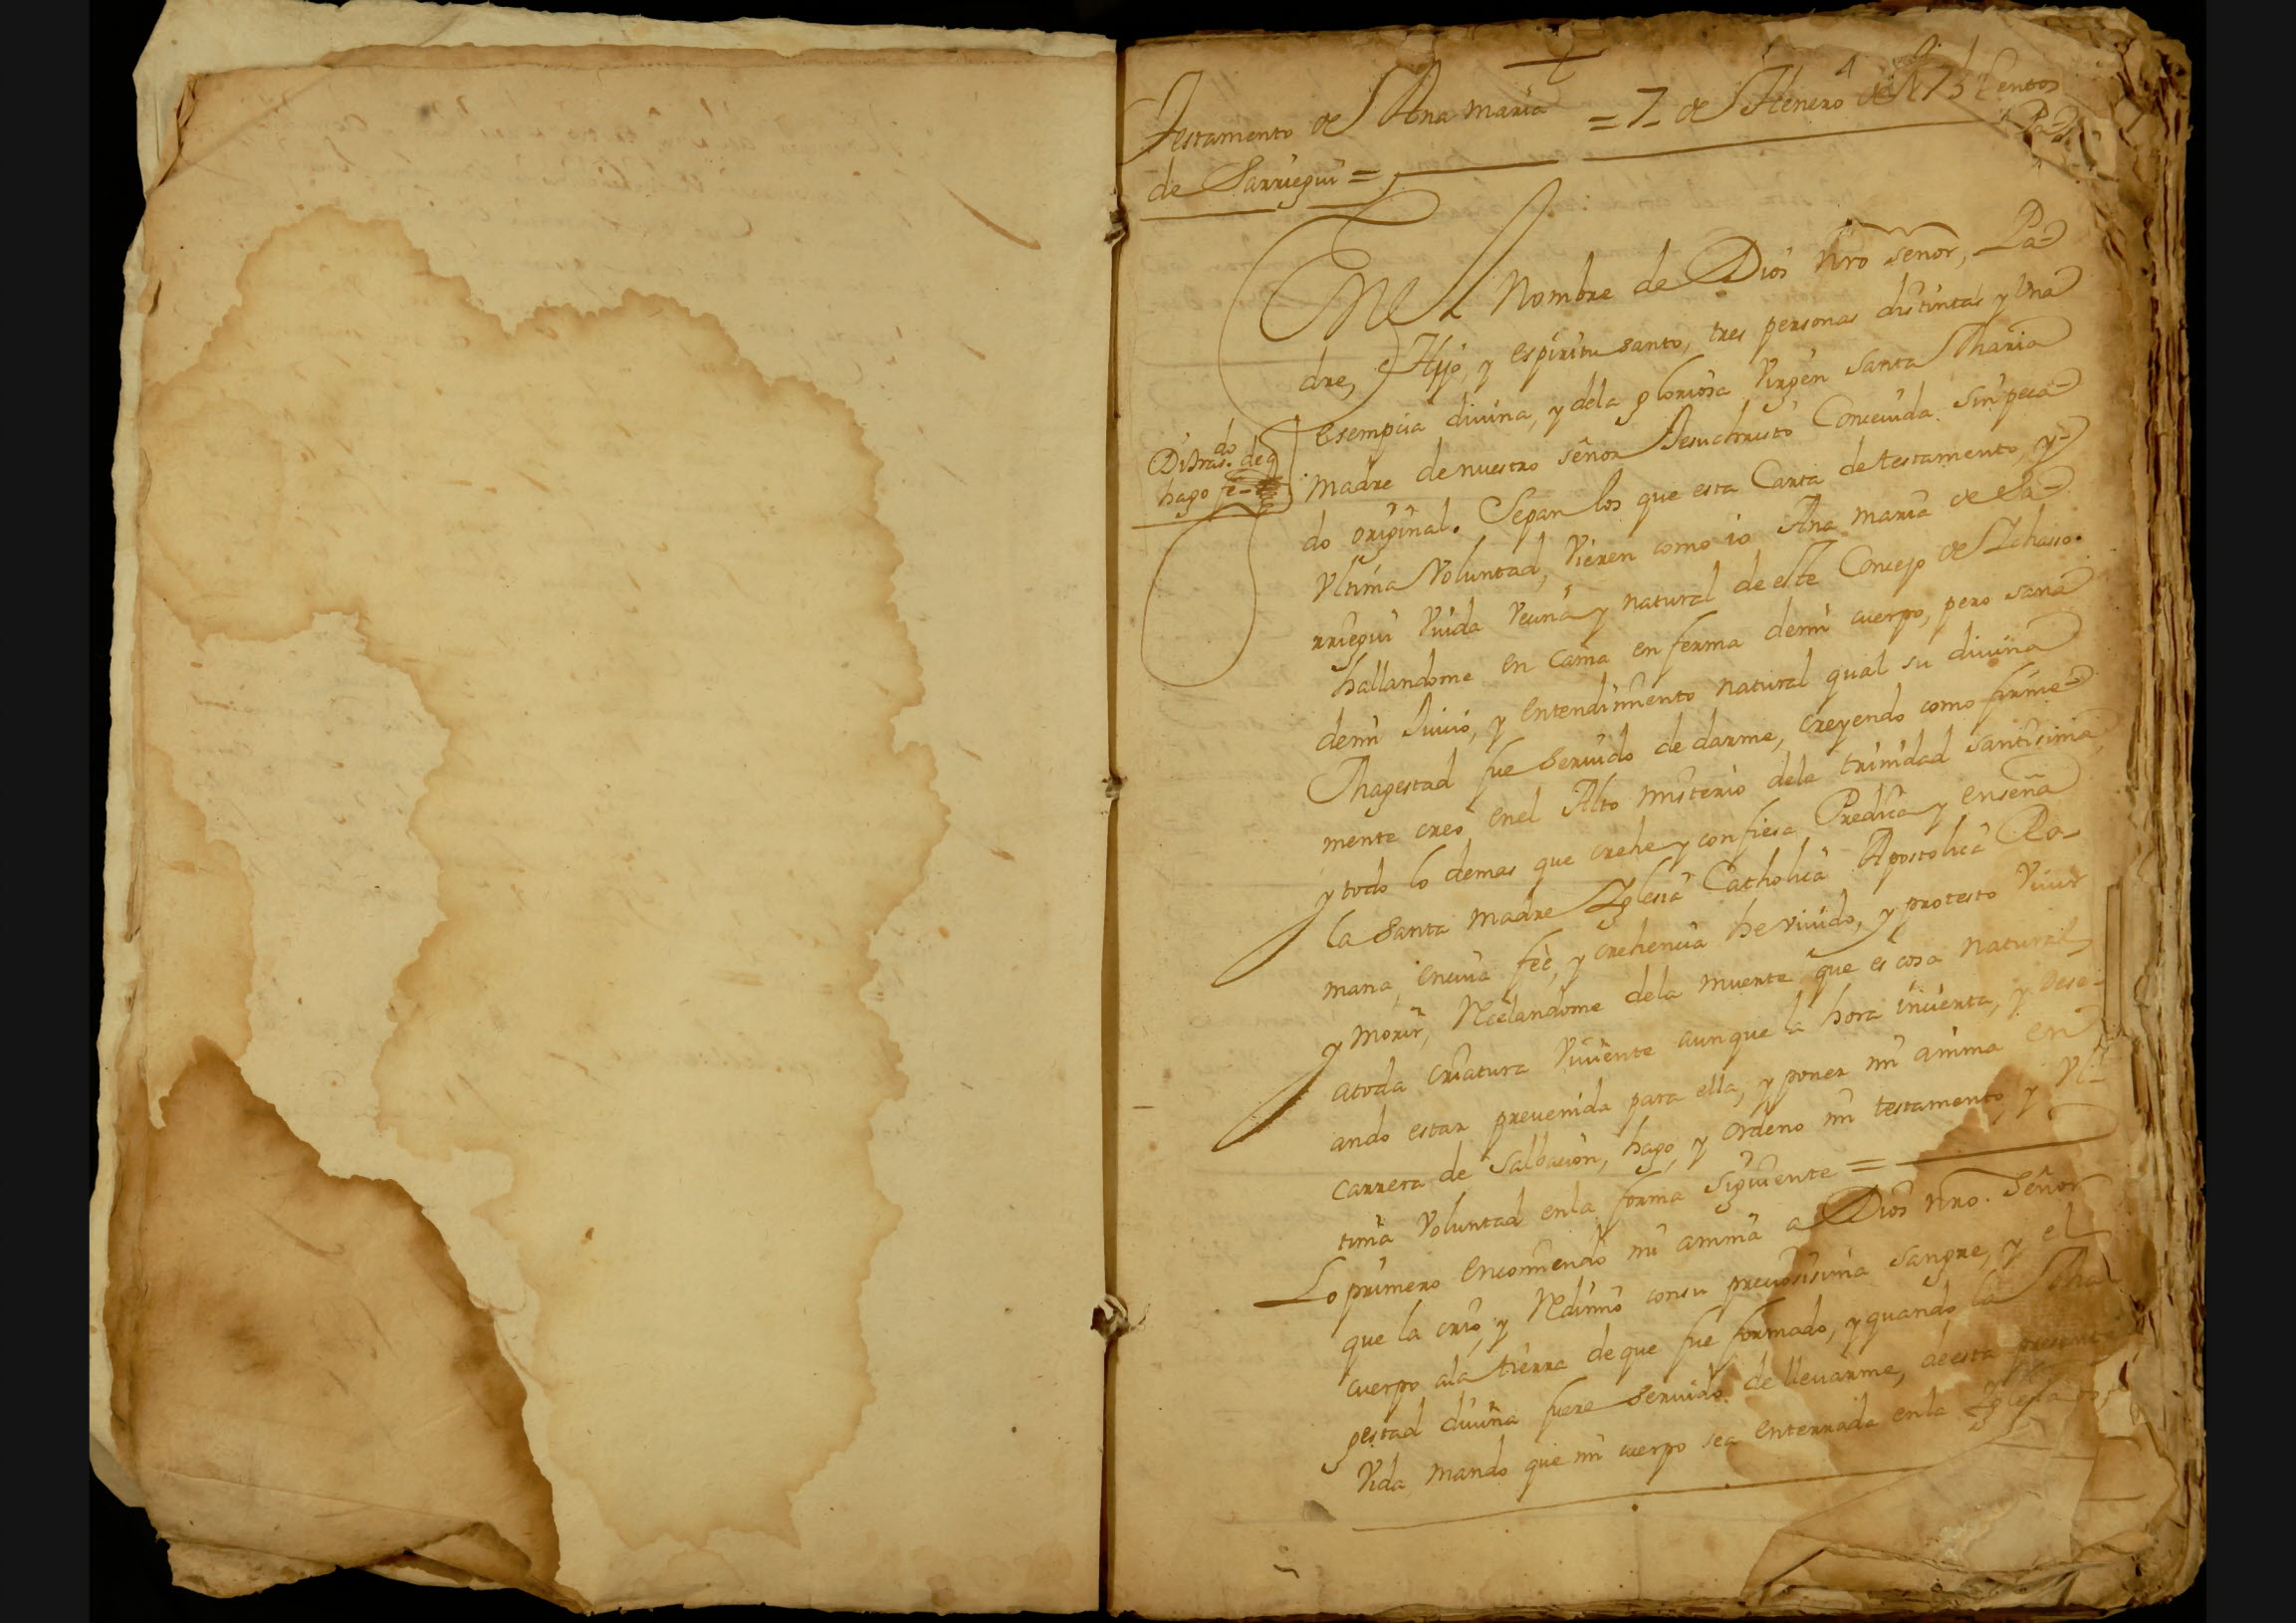 Testamento de Ana maria = 7 de Henero de
de Sarriegui =
En el Nombre de Dios nro señor, Pa-
dre, Hijo, y espiritu santo, tres personas distintas y Vna
esempcia diuina, y dela gloriosa Virgen Santa Maria
madre de nuestro señor Jesuchristo Conceuida sin peca-
do original. Sepan los que esta Carta de testamento, y
Vltima Voluntad, Vieren como io Ana maria de Sa-
rriegui Viuda Vecina y natural de este Concejo de Ichasso.
hallandome en cama enferma demi cuerpo, pero sana
demi Juicio, y entendimiento natural qual su diuina
Magestad fue seruido de darme, creyendo como firme-
mente creo enel Alto misterio dela trinidad santisima
y todo lo demas que crehe y confiesa Predica y enseña
la santa madre Iglesia Catholica Apostolica Ro-
mana encuia feè, y crehencia he viuido, y protesto Viuir
y morir, Recelandome dela muerte que es cosa natural
atoda criatura Viuiente aunque la hora incierta, y dese-
ando estar preuenida para ella, y poner mi anima en
carrera de salbacion, hago, y ordeno mi testamento, y Vl-
tima Voluntad enla forma siguiente =
Lo primero encomiendo mi anima a Dios nro. señor
que la crio, y Redimio consu preciosisima sangre, y el
cuerpo ala tierra deque fue formado, y quando la Ma-
gestad diuina fuere seruido de lleuarme, de esta presente
Vida mando que mi cuerpo sea enterrada enla Iglesia
hago fe